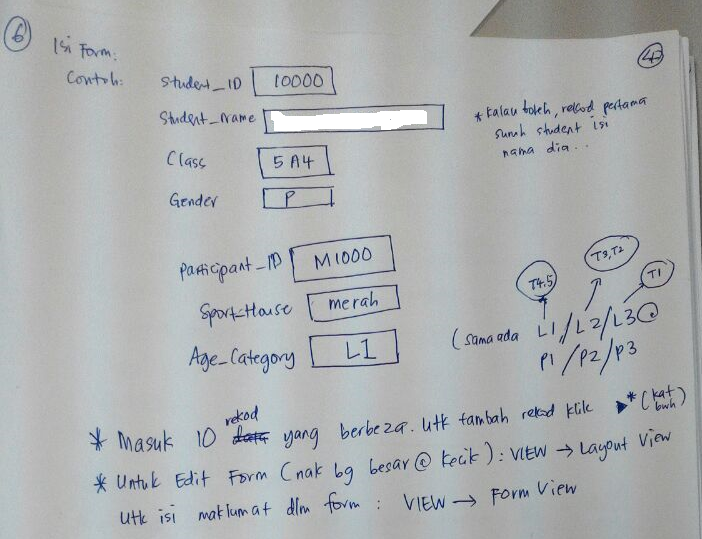 6
Isi Form:
Contoh: Student_ID 10000
Student_Name
* kalau boleh, rekod pertama
suruh student isi
nama dia...
Class 5A4
Gender P
Participant_ID M1000
Sport_House merah
Age_Category L1
T4.5 T3,T2 T1
(sama ada L1/L2/L3
P1/P2/P3
* Masuk 10 rekod yang berbeza. Utk tambah rekod klik ▶* (kat bwh)
* Untuk Edit Form (nak bg besar @ kecik): VIEW → Layout View
Utk isi maklumat dlm form : VIEW → Form View